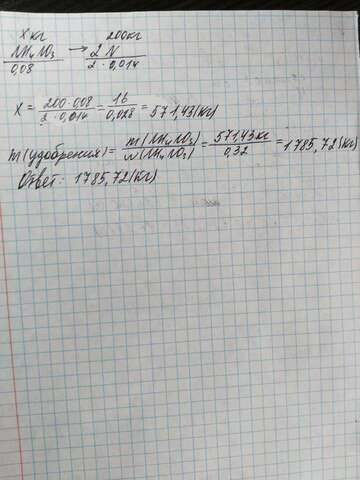 X кг 200кг
NH₄NO₃ → 2N
0,08 2·0,014
X = 200·0,08 / 2·0,014 = 16 / 0,028 = 571,43(кг)
m(удобрения) = m(NH₄NO₃) / w(NH₄NO₃) = 571,43кг / 0,32 = 1785,72(кг)
Ответ: 1785,72(кг)